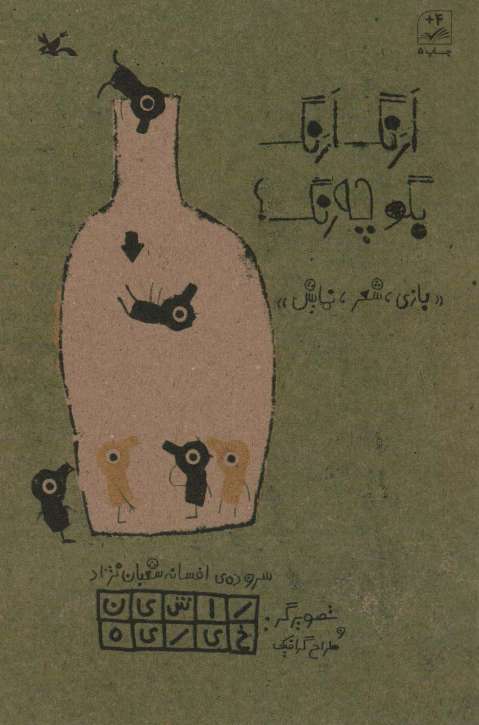 +۴
چاپ ۵
اَرنگ اَرنگ
بگو چه رنگ؟
«بازی، شعر، نمایش»
سروده‌ی افسانه شعبان نژاد
تصویرگر و طراح گرافیک:
ر ا ش ی ن
خ ی ر ی ه